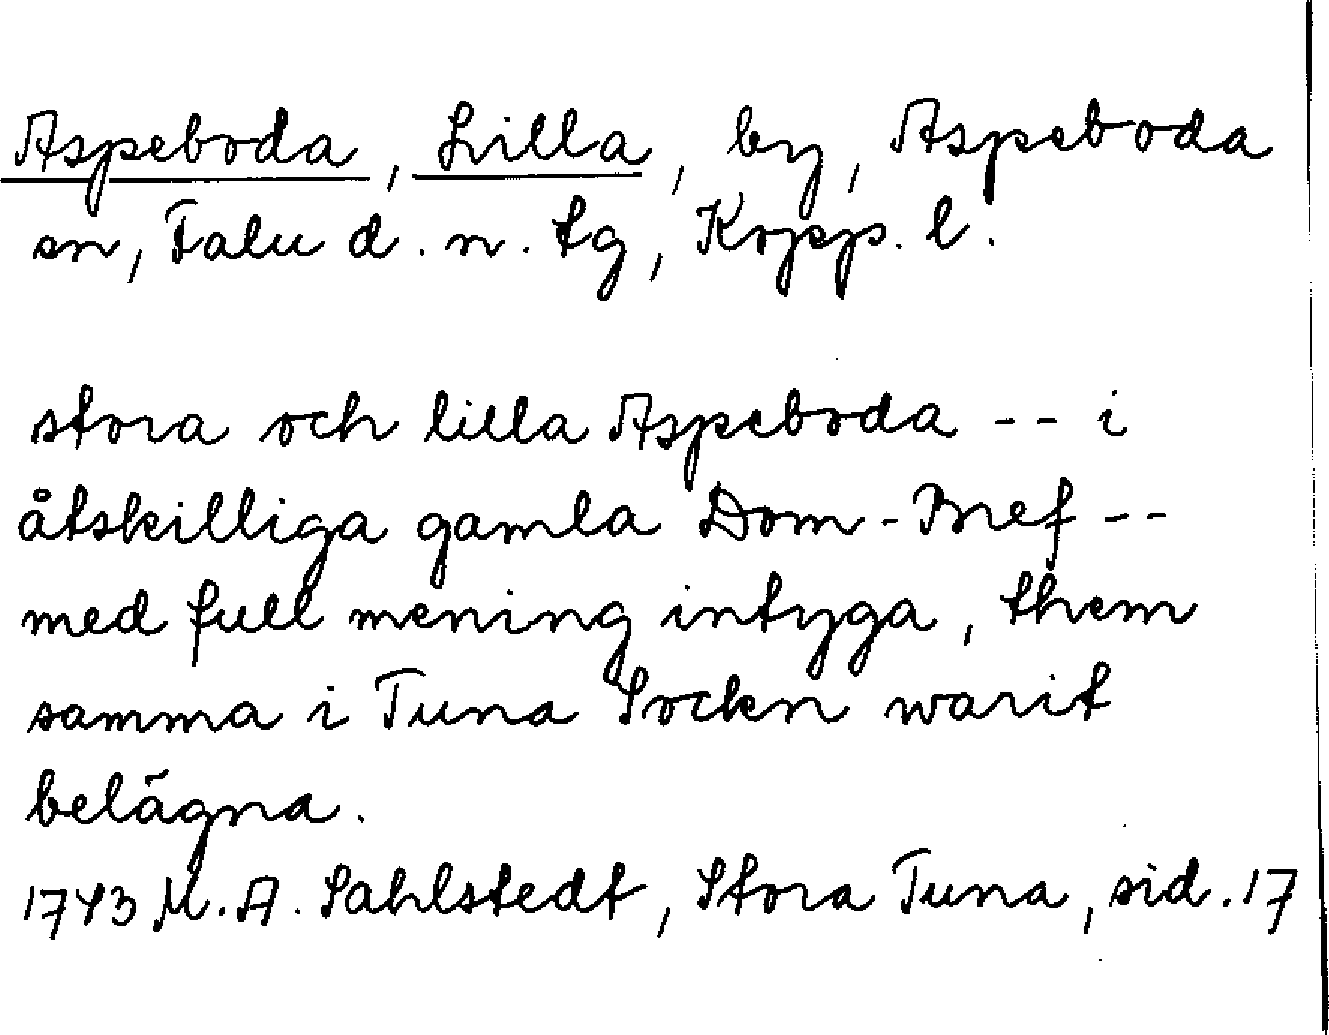 Aspeboda, Lilla, by, Aspeboda
sn, Falu d. n. tg, Kopp. l.
stora och lilla Aspeboda -- i
åtskilliga gamla Dom-Bref --
med full mening intyga, them
samma i Tuna Sockn warit
belägna.
1743 M. A. Sahlstedt, Stora Tuna, sid. 17